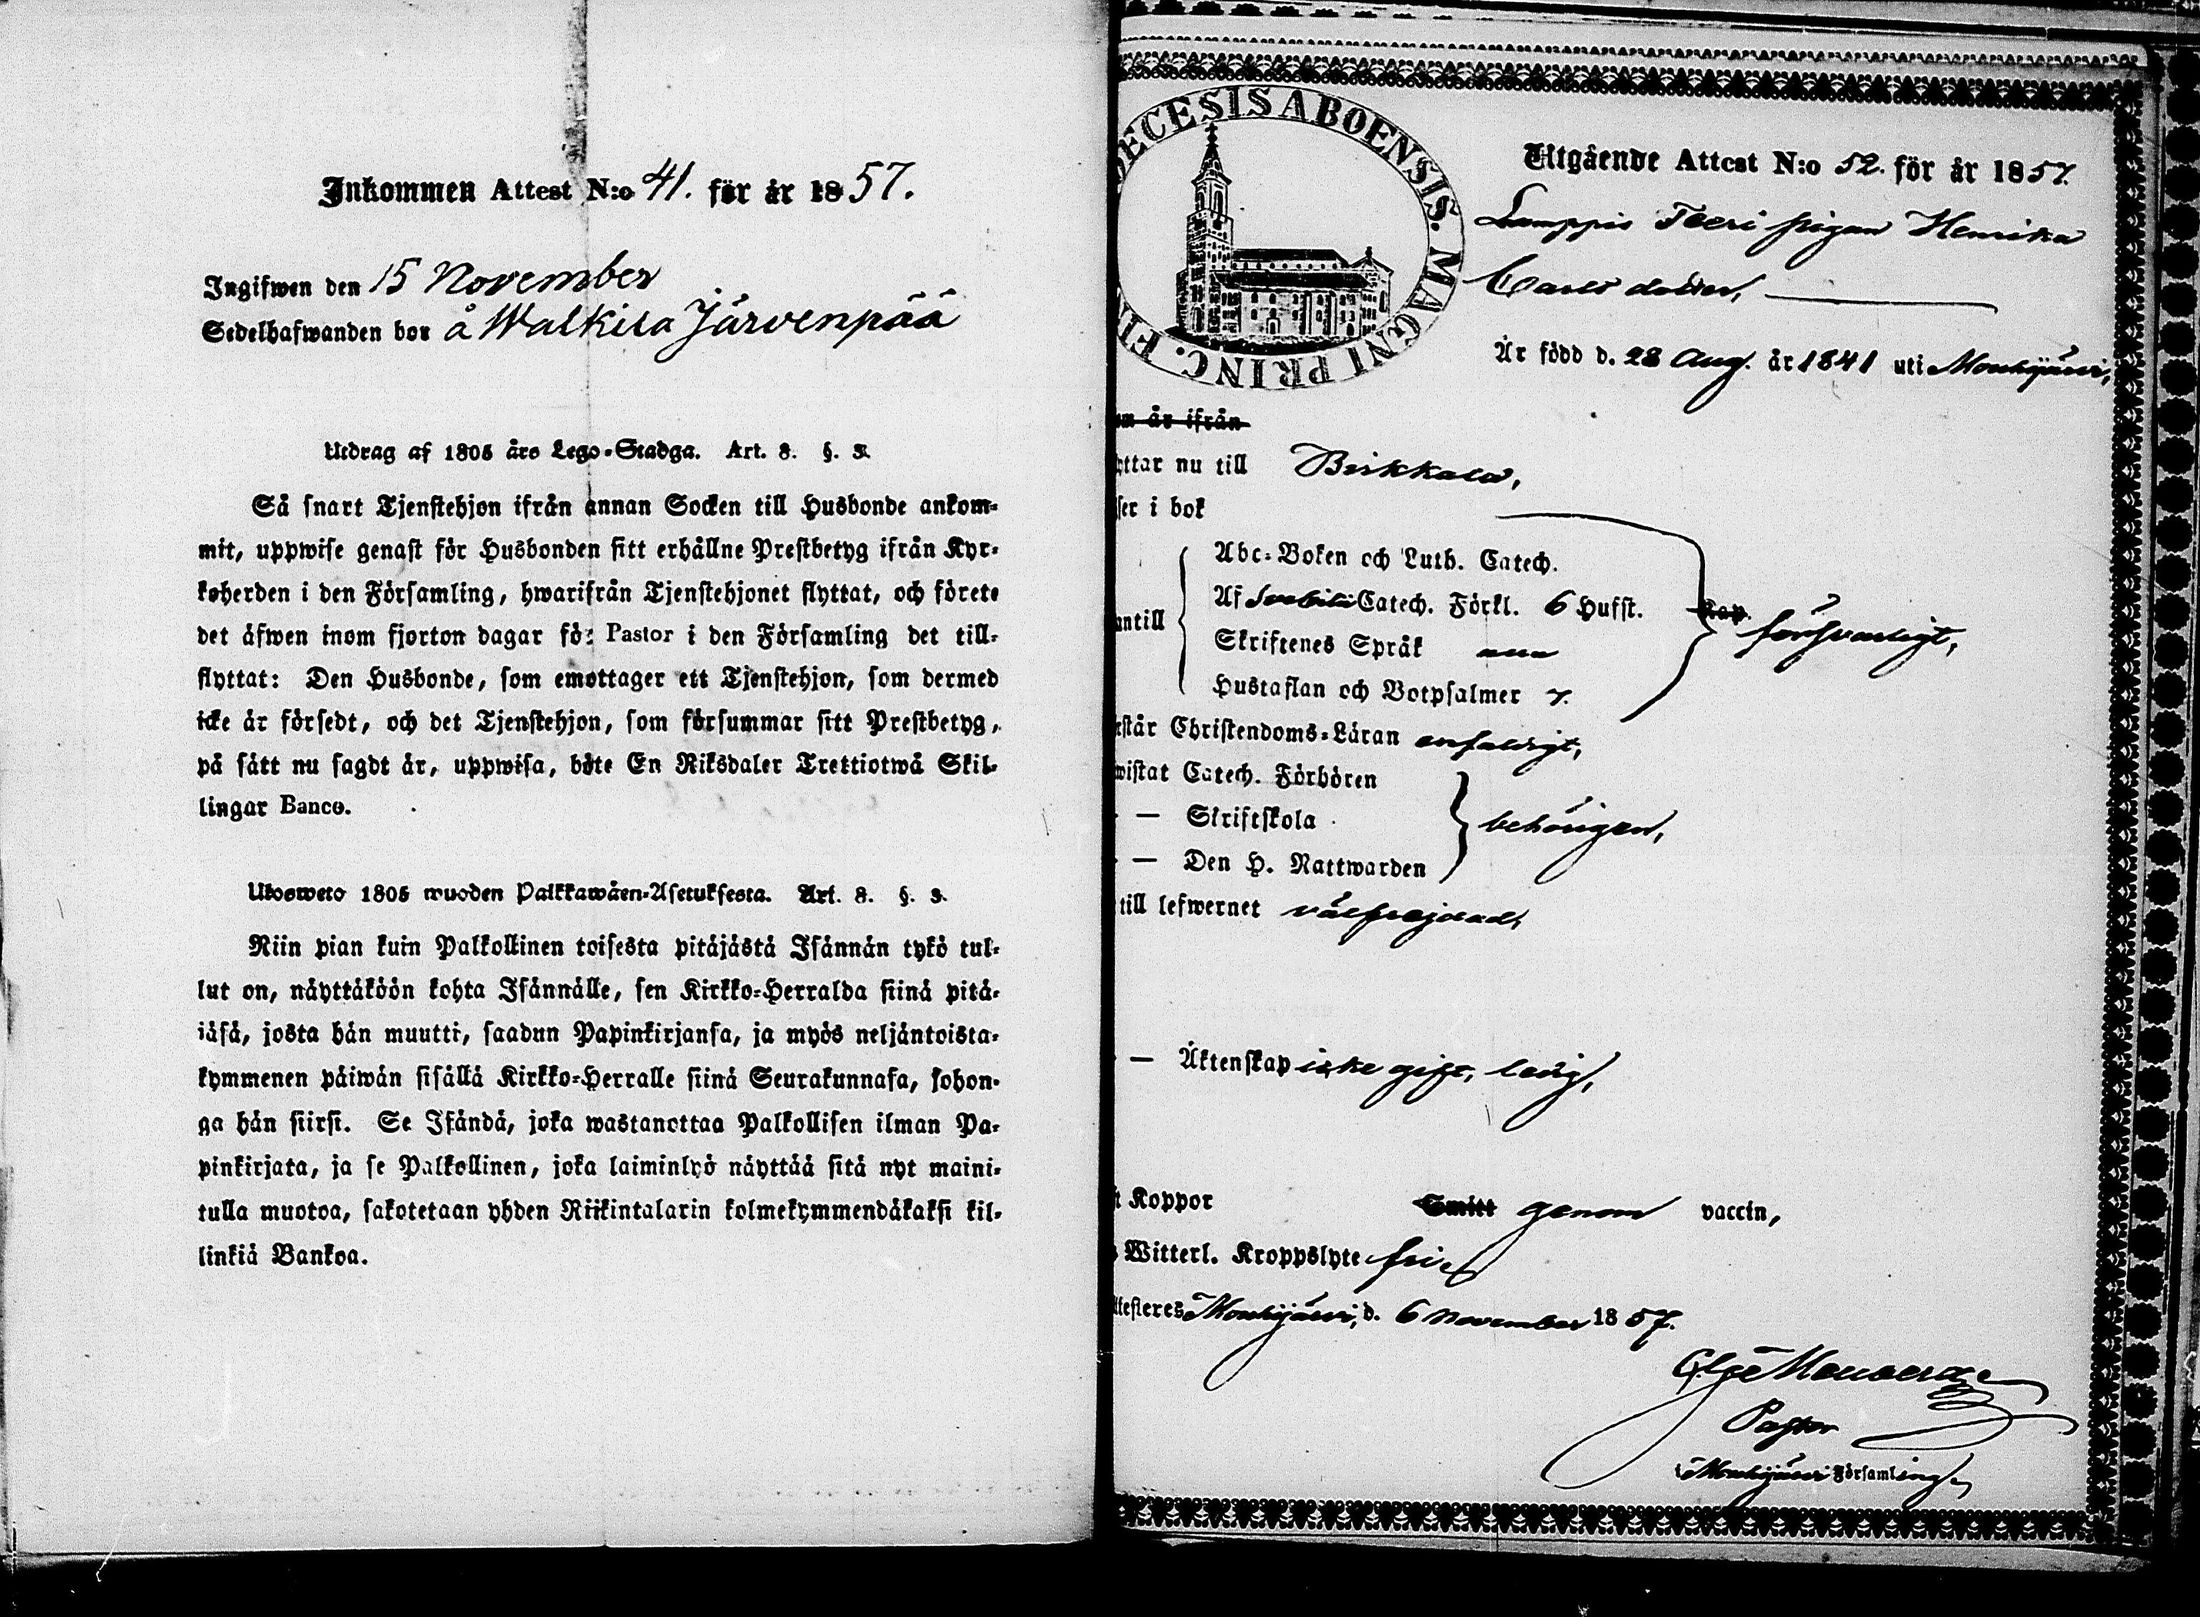 Inkommen Attest N:o 41. för år 1857.
Ingifwen den 15 November
Sedelhafwanden bor å Walkila Järvenpää
Utdrag af 1805 års Lego-Stadga. Art. 8. §. 3.
Så snart Tjenstehjon ifrån annan Socken till Husbonde ankom-
mit, uppwise genast för Husbonden sitt erhållne Prestbetyg ifrån Kyr-
koherden i den Församling, hwarifrån Tjenstehjonet flyttat, och förete
det äfwen inom fjorton dagar för Pastor i den Församling det till-
flyttat: Den Husbonde, som emottager ett Tjenstehjon, som dermed
icke är försedt, och det Tjenstehjon, som försummar sitt Prestbetyg,
på sätt nu sagdt är, uppwisa, böte En Riksdaler Trettiotwå Skil-
lingar Banco.
Ulosweto 1805 wuoden Palkkawäen-Asetuksesta. Art. 8. §. 3.
Niin pian kuin Palkollinen toisesta pitäjästä Isännän tykö tul-
lut on, näyttäköön kohta Isännälle, sen Kirkko-Herralda siinä pitä-
jäsä, josta hän muutti, saadun Papinkirjansa, ja myös neljäntoista-
kymmenen päiwän sisällä Kirkko-Herralle siinä Seurakunnasa, johon-
ga hän siirsi. Se Isändä, joka wastanottaa Palkollisen ilman Pa-
pinkirjata, ja se Palkollinen, joka laiminlyö näyttää sitä nyt maini-
tulla muotoa, sakotetaan yhden Riikintalarin kolmekymmendäkaksi kil-
linkiä Bankoa.
ECESIS ABOENSIS. MAGNI PRINC. FI
Utgående Attest N:o 52. för år 1857.
Lamppis Teeri pigan Henrika
Carls dotter,
Är född d. 28 Aug. år 1841 uti Mouhijärvi,
om är ifrån
yttar nu till Birkkala,
ser i bok
Abc-Boken och Luth. Catech.
Af Svebilii Catech. Förkl. 6 Hufst. Kap.
antill försvarligt,
Skriftenes Språk
Hustaflan och Botpsalmer 7.
rstår Christendoms-Läran enfaldigt,
wistat Catech. Förhören
— Skriftskola behörigen,
— Den H. Nattwarden
till lefwernet välfrejdad,
— Äktenskap icke gift, ledig,
t Koppor Smitt genom vaccin,
s Witterl. Kroppslyte fri
ttesteres Mouhijärvi, d. 6 November 1857.
Pastor
i Mouhijärvi Församling